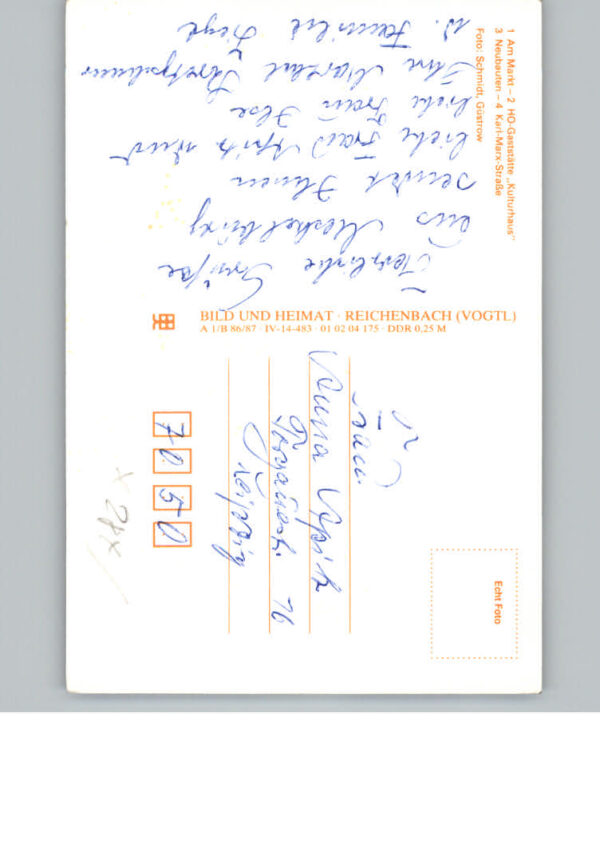 1 Am Markt – 2 HO-Gaststätte „Kulturhaus"
3 Neubauten – 4 Karl-Marx-Straße
Foto: Schmidt, Güstrow
Herzliche Grüße
aus
sendet Ihnen
liebe Frau Apitz und
liebe Frau Ilse
Ihr
u. Familie
BILD UND HEIMAT · REICHENBACH (VOGTL)
A 1/B 86/87 · IV-14-483 · 01 02 04 175 · DDR 0,25 M
Echt Foto
Frau
Anna Apitz
16
Leipzig
7050